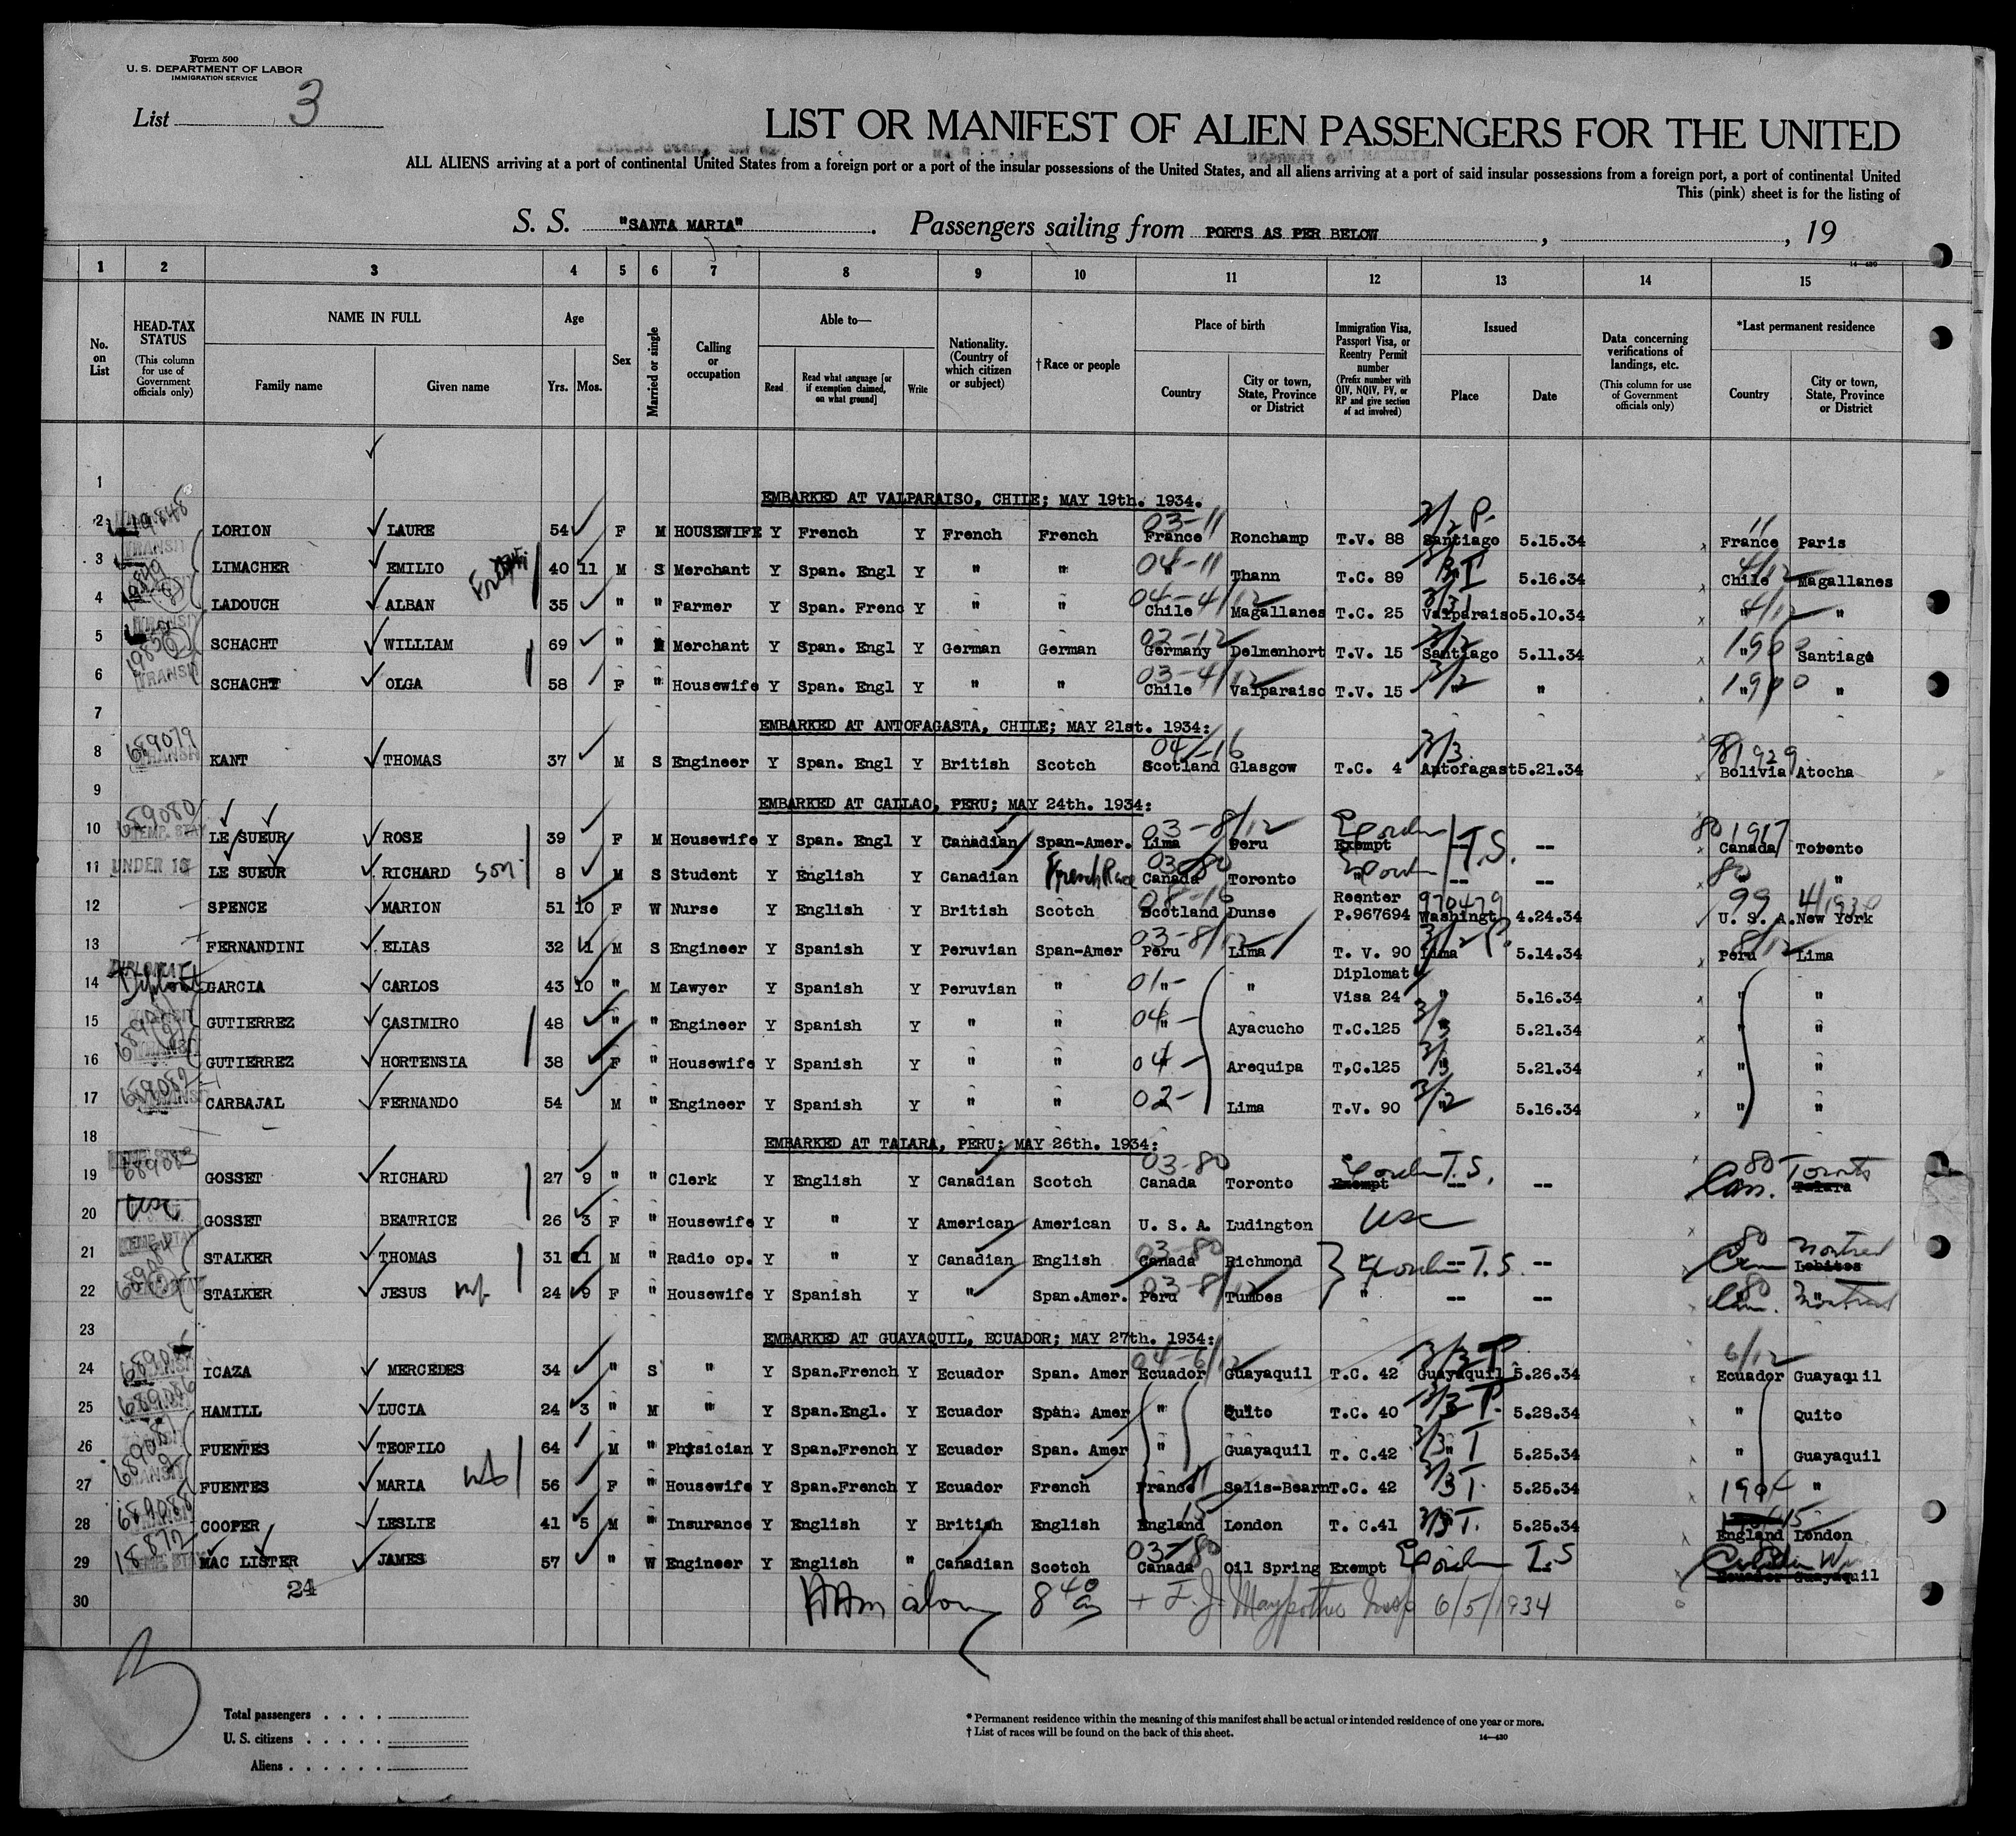 Form 500
U. S. DEPARTMENT OF LABOR
IMMIGRATION SERVICE
List 3
LIST OR MANIFEST OF ALIEN PASSENGERS FOR THE UNITED
ALL ALIENS arriving at a port of continental United States from a foreign port or a port of the insular possessions of the United States, and all aliens arriving at a port of said insular possessions from a foreign port, a port of continental United
This (pink) sheet is for the listing of
S. S. "SANTA MARIA" . Passengers sailing from PORTS AS PER BELOW , , 19
14—430
1 2 3 4 5 6 7 8 9 10 11 12 13 14 15
No. on List
HEAD-TAX STATUS (This column for use of Government officials only)
NAME IN FULL Family name Given name
Age Yrs. Mos.
Sex
Married or single
Calling or occupation
Able to— Read Read what language [or if exemption claimed, on what ground] Write
Nationality. (Country of which citizen or subject)
†Race or people
Place of birth Country City or town, State, Province or District
Immigration Visa, Passport Visa, or Reentry Permit number (Prefix number with QIV, NQIV, PV, or RP and give section of act involved)
Issued Place Date
Data concerning verifications of landings, etc. (This column for use of Government officials only)
*Last permanent residence Country City or town, State, Province or District
1
EMBARKED AT VALPARAISO, CHILE; MAY 19th. 1934.
2 LORION LAURE 54 F M HOUSEWIFE Y French Y French French 03-11 France Ronchamp T.V. 88 3/2 P. Santiago 5.15.34 11 France Paris
3 TRANSIT LIMACHER EMILIO 40 11 M S Merchant Y Span. Engl Y " " 04-11 Thann T.C. 89 5.16.34 4/12 Chile Magallanes
4 LADOUCH ALBAN 35 " " Farmer Y Span. Frenc Y " " 04-4/12 Chile Magallanes T.C. 25 Valparaiso 5.10.34 4/12 " "
5 SCHACHT WILLIAM 69 " M Merchant Y Span. Engl Y German German 02-12 Germany Delmenhort T.V. 15 3/2 Santiago 5.11.34 " Santiago
6 TRANSIT SCHACHT OLGA 58 F " Housewife Y Span. Engl Y " " 03-4/12 Chile Valparaiso T.V. 15 3/2 " " " "
7 EMBARKED AT ANTOFAGASTA, CHILE; MAY 21st. 1934:
8 689079 KANT THOMAS 37 M S Engineer Y Span. Engl Y British Scotch 04-16 Scotland Glasgow T.C. 4 3/3 Antofagast 5.21.34 98 1929 Bolivia Atocha
9 EMBARKED AT CALLAO, PERU; MAY 24th. 1934:
10 689080 TEMP. STAY LE SUEUR ROSE 39 F M Housewife Y Span. Engl Y Canadian Span-Amer. 03-8/12 Lima Peru Exempt -- T.S. -- 80 1917 Canada Toronto
11 UNDER 16 LE SUEUR RICHARD son 8 M S Student Y English Y Canadian French Race 03-80 Canada Toronto " -- -- 80 " "
12 SPENCE MARION 51 10 F W Nurse Y English Y British Scotch 08-16 Scotland Dunse Reenter P.967694 970479 Washingt 4.24.34 99 U. S. A. New York
13 FERNANDINI ELIAS 32 11 M S Engineer Y Spanish Y Peruvian Span-Amer 03-8/12 Peru Lima T. V. 90 Lima 5.14.34 8/12 Peru Lima
14 DIPLOMAT GARCIA CARLOS 43 10 " M Lawyer Y Spanish Y Peruvian " 01- " " Diplomat Visa 24 " 5.16.34 " "
15 GUTIERREZ CASIMIRO 48 " " Engineer Y Spanish Y " " 04- " Ayacucho T.C.125 3/3 " 5.21.34 " "
16 GUTIERREZ HORTENSIA 38 F " Housewife Y Spanish Y " " 04- " Arequipa T.C.125 " 5.21.34 " "
17 689082 CARBAJAL FERNANDO 54 M " Engineer Y Spanish Y " " 02- Lima T.V. 90 3/2 " 5.16.34 " "
18 EMBARKED AT TALARA, PERU; MAY 26th. 1934:
19 689083 GOSSET RICHARD 27 9 " " Clerk Y English Y Canadian Scotch 03-80 Canada Toronto Exempt T.S. -- -- 80 Can. Toronto Talara
20 USC GOSSET BEATRICE 26 3 F " Housewife Y " Y American American U. S. A. Ludington USC
21 TEMP. STAY STALKER THOMAS 31 11 M " Radio op. Y " Y Canadian English 03-80 Canada Richmond " -- T.S. -- 80 Can Montreal Lobitos
22 STALKER JESUS wf. 24 9 F " Housewife Y Spanish Y " Span.Amer. 03-8/12 Peru Tumbes " -- -- 80 Can. Montreal
23 EMBARKED AT GUAYAQUIL, ECUADOR; MAY 27th. 1934:
24 689085 ICAZA MERCEDES 34 " S " Y Span.French Y Ecuador Span. Amer 04-6/12 Ecuador Guayaquil T.C. 42 3/3 T Guayaquil 5.26.34 6/12 Ecuador Guayaquil
25 689086 HAMILL LUCIA 24 3 " M " Y Span.Engl. Y Ecuador Span. Amer " Quito T.C. 40 5.28.34 " Quito
26 689087 FUENTES TEOFILO 64 M " Physician Y Span.French Y Ecuador Span. Amer " Guayaquil T. C.42 3/3 T " 5.25.34 " Guayaquil
27 FUENTES MARIA wf 56 F " Housewife Y Span.French Y Ecuador French 11 France Salis-Bearn T.C. 42 3/3 T. 5.25.34 1904 "
28 689088 COOPER LESLIE 41 5 M " Insurance Y English Y British English 15 England London T. C.41 3/3 T. 5.25.34 15 England London
29 18872 MAC LISTER JAMES 57 " W Engineer Y English " Canadian Scotch 03-80 Canada Oil Spring Exempt T.S Ecuador Guayaquil
24
30 8 40 + F. J. Insp 6/5/1934
Total passengers . . . .
U. S. citizens . . . . .
Aliens . . . . . .
* Permanent residence within the meaning of this manifest shall be actual or intended residence of one year or more.
† List of races will be found on the back of this sheet.
14—430